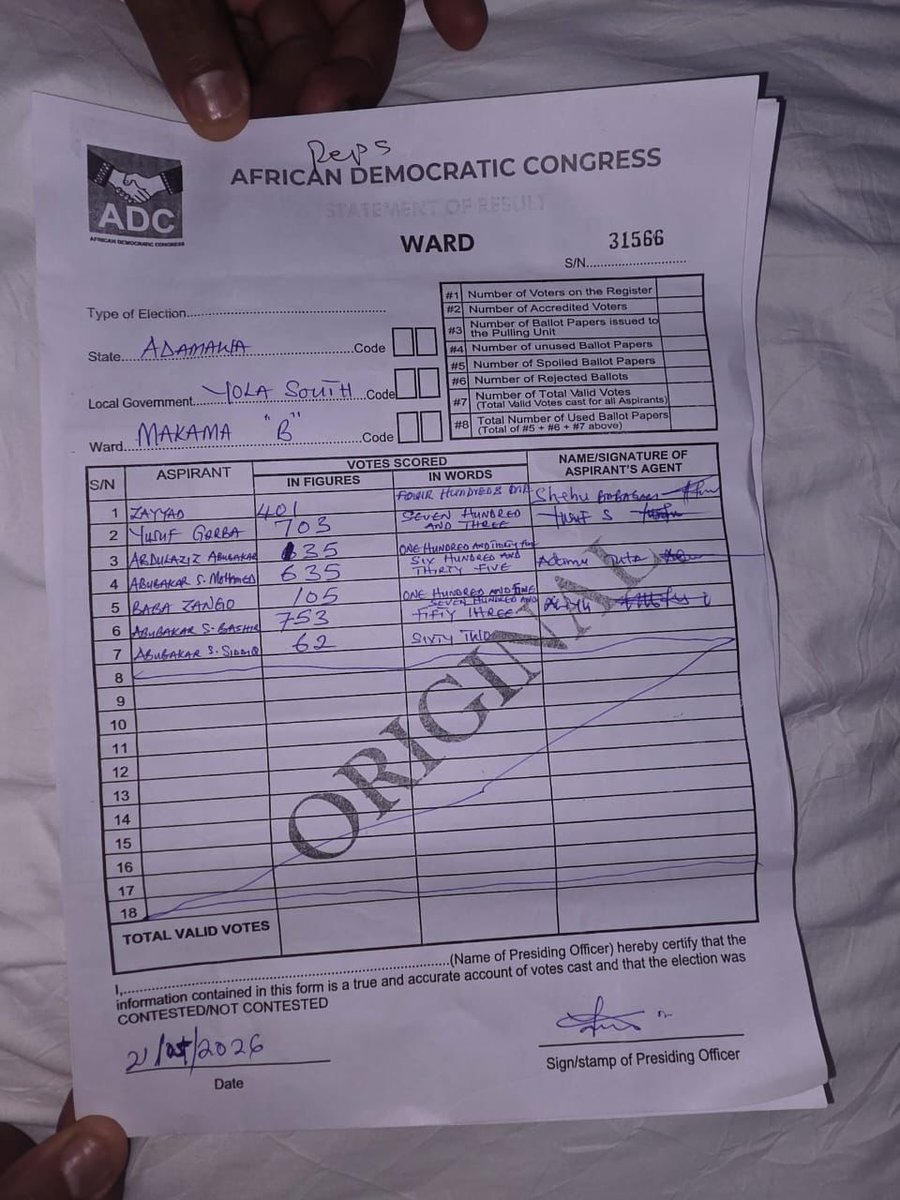 Reps
AFRICAN DEMOCRATIC CONGRESS
ADC
AFRICAN DEMOCRATIC CONGRESS
STATEMENT OF RESULT
WARD
31566
S/N
Type of Election
State ADAMAWA Code
Local Government YOLA SOUTH Code
Ward MAKAMA "B" Code
#1 Number of Voters on the Register
#2 Number of Accredited Voters
#3 Number of Ballot Papers issued to the Pulling Unit
#4 Number of unused Ballot Papers
#5 Number of Spoiled Ballot Papers
#6 Number of Rejected Ballots
#7 Number of Total Valid Votes (Total Valid Votes cast for all Aspirants)
#8 Total Number of Used Ballot Papers (Total of #5 + #6 + #7 above)
S/N ASPIRANT VOTES SCORED NAME/SIGNATURE OF ASPIRANT'S AGENT
IN FIGURES IN WORDS
1 ZAYYAD 401 FOUR HUNDREDS Shehu
2 YUSUF GARBA 703 SEVEN HUNDRED AND THREE YUSUF S
3 ABDULAZIZ ABUBAKAR 135 ONE HUNDRED AND THIRTY FIVE
4 ABUBAKAR S. MOHAMED 635 SIX HUNDRED AND THIRTY FIVE
5 BABA ZANGO 105 ONE HUNDRED AND FIVE
6 ABUBAKAR S. BASHIR 753 SEVEN HUNDRED AND FIFTY THREE
7 ABUBAKAR S. SIDDIQ 62 SIXTY TWO
8
9
10
11
12
13
14
15
16
17
18
ORIGINAL
TOTAL VALID VOTES
I, (Name of Presiding Officer) hereby certify that the
information contained in this form is a true and accurate account of votes cast and that the election was
CONTESTED/NOT CONTESTED
21/05/2026
Date
Sign/stamp of Presiding Officer